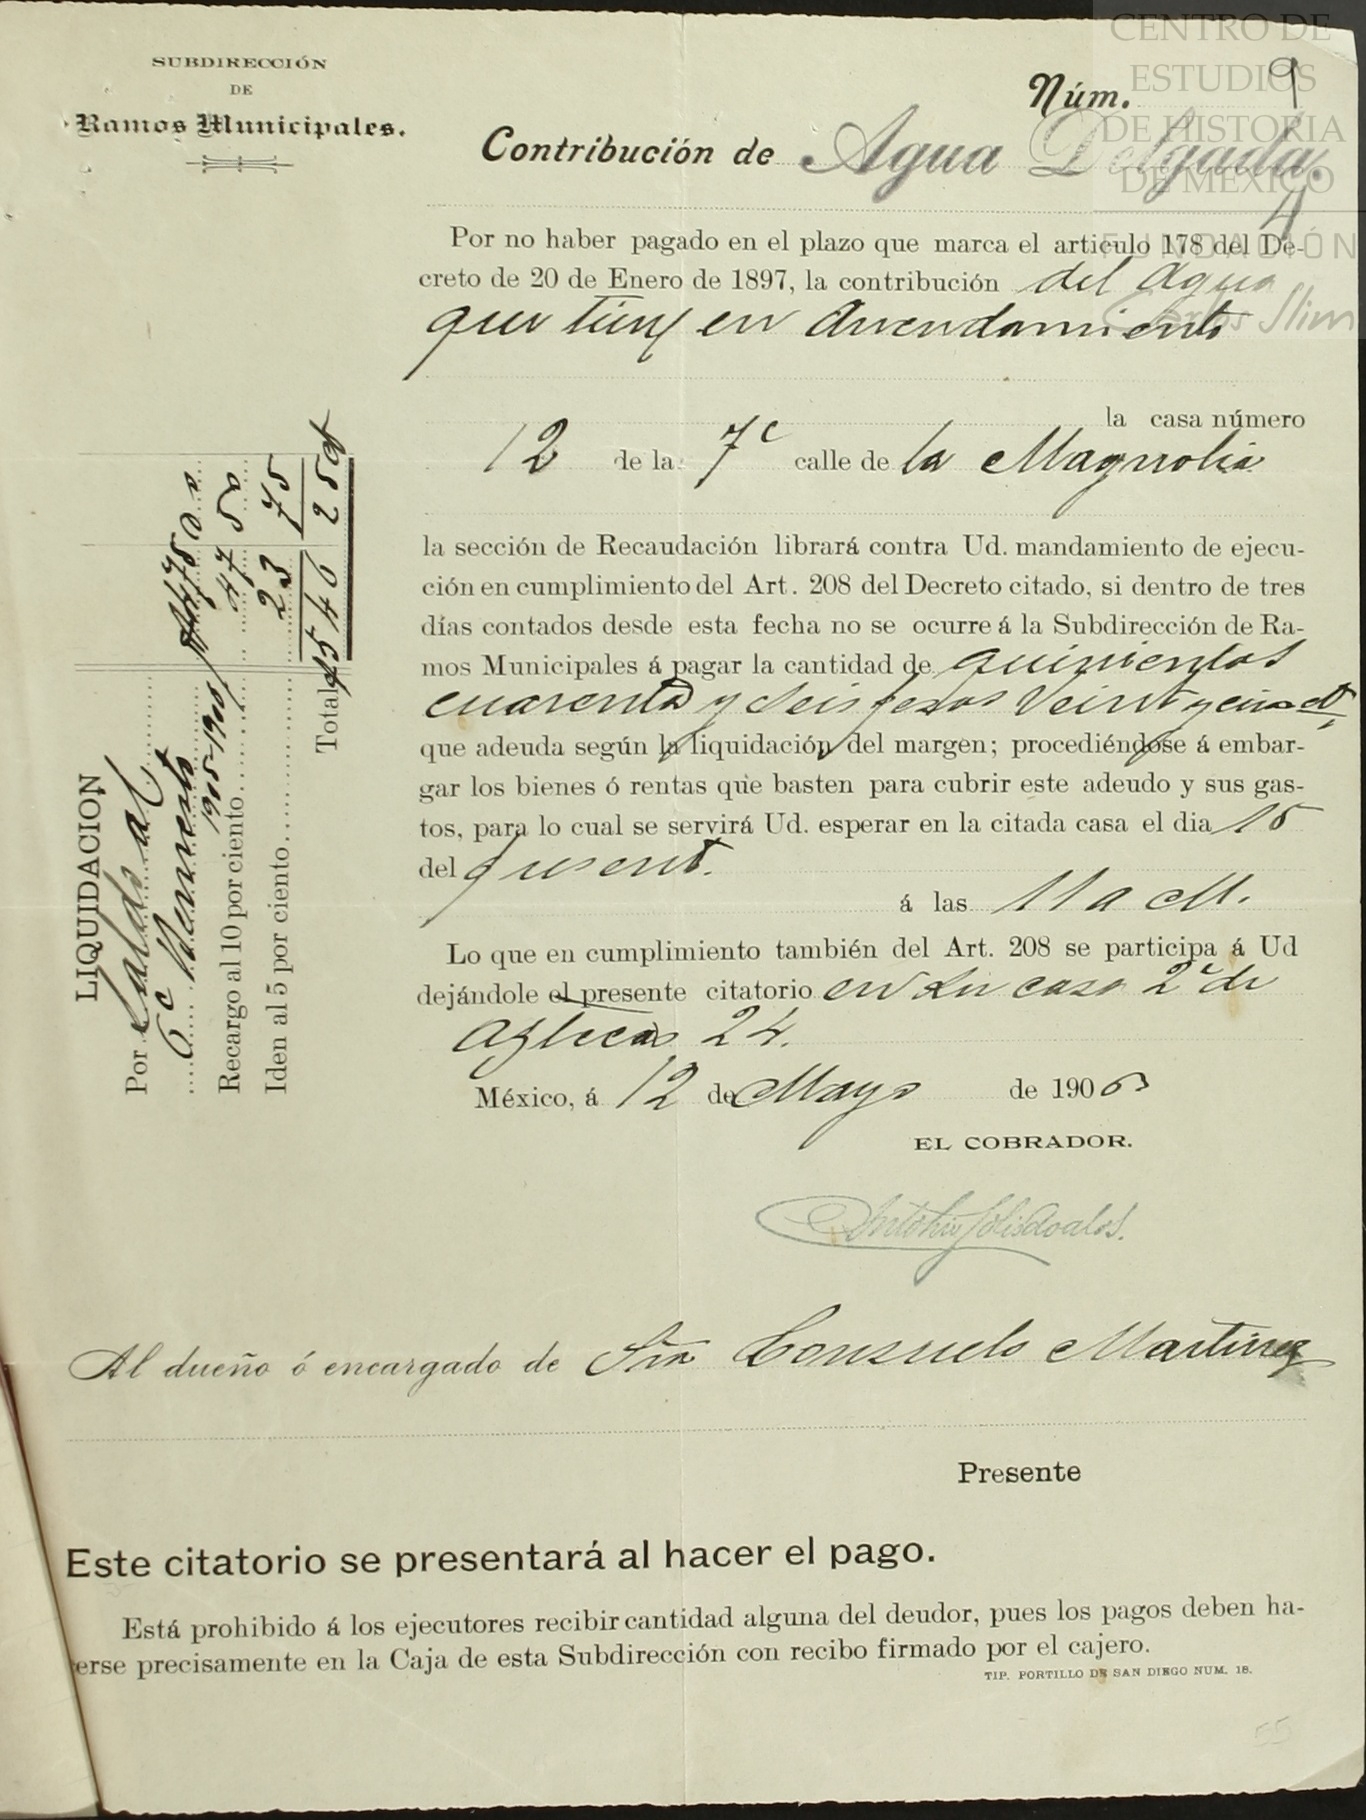 CENTRO DE
ESTUDIOS
DE HISTORIA
DE MEXICO
FUNDACIÓN
Carlos Slim
SUBDIRECCIÓN
DE
Ramos Municipales.
Núm. 9
Contribución de Agua Delgada.
Por no haber pagado en el plazo que marca el articulo 178 del De-
creto de 20 de Enero de 1897, la contribución del Agua
que tiene en Arrendamiento
la casa número
12 de la 7ª calle de la Magnolia
la sección de Recaudación librará contra Ud. mandamiento de ejecu-
ción en cumplimiento del Art. 208 del Decreto citado, si dentro de tres
días contados desde esta fecha no se ocurre á la Subdirección de Ra-
mos Municipales á pagar la cantidad de quinientos
cuarenta y seis pesos Veint y cinco
que adeuda según la liquidación del margen; procediéndose á embar-
gar los bienes ó rentas que basten para cubrir este adeudo y sus gas-
tos, para lo cual se servirá Ud. esperar en la citada casa el dia 15
del presente.
á las 11 a M.
Lo que en cumplimiento también del Art. 208 se participa á Ud
dejándole el presente citatorio en su casa 2ª de
Aztecas 24.
México, á 12 de Mayo de 190
EL COBRADOR.
Al dueño ó encargado de Sra Consuelo Martinez
Presente
Este citatorio se presentará al hacer el pago.
Está prohibido á los ejecutores recibir cantidad alguna del deudor, pues los pagos deben ha-
erse precisamente en la Caja de esta Subdirección con recibo firmado por el cajero.
TIP. PORTILLO DE SAN DIEGO NUM. 18.
55
LIQUIDACION
Por Saldo al
6º 1905-1906 $475 00
Recargo al 10 por ciento 47 50
Iden al 5 por ciento 23 75
Total $